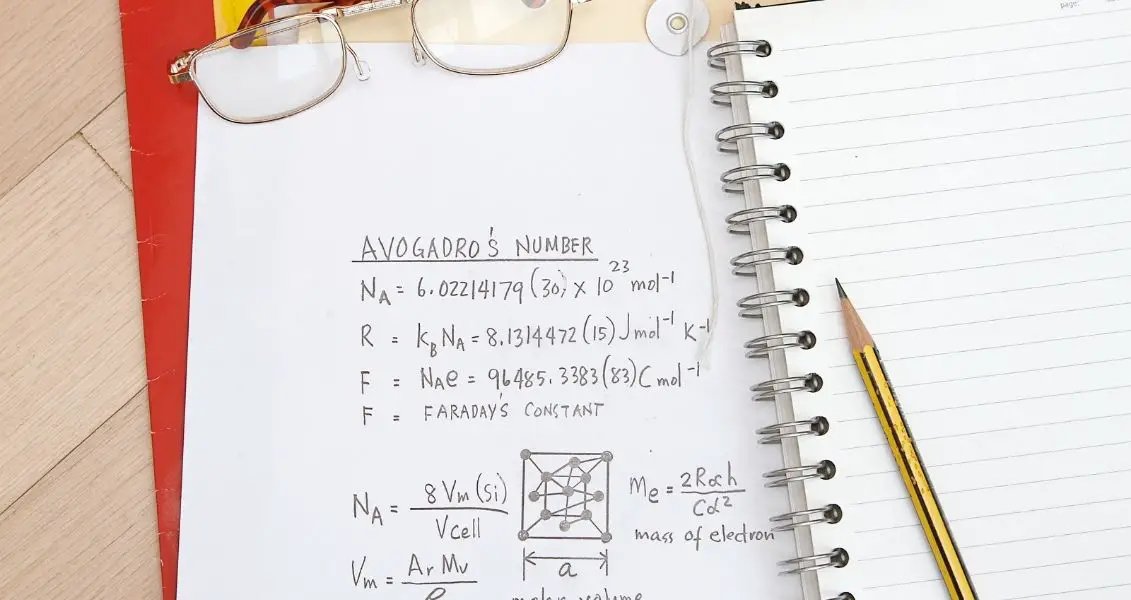 page:
AVOGADRO'S NUMBER
N_A = 6.02214179(30) x 10^23 mol^-1
R = k_B N_A = 8.1314472(15) J mol^-1 K^-1
F = N_A e = 96485.3383(83) C mol^-1
F = FARADAY'S CONSTANT
N_A = 8 Vm (Si) / Vcell
Me = 2R∞h / Cα^2
mass of electron
a
Vm = Ar Mu / ρ
molar volume